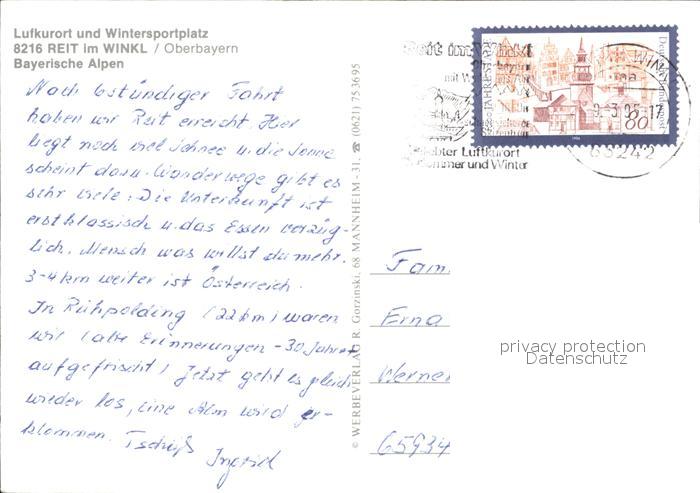 Lufkurort und Wintersportplatz
8216 REIT im WINKL / Oberbayern
Bayerische Alpen
Nach 6stündiger Fahrt
haben wir Reit erreicht. Hier
liegt noch viel Schnee u. die Sonne
scheint dazu. Wanderwege gibt es
sehr viele. Die Unterkunft ist
erstklassisch u. das Essen vorzüg-
lich. Mensch was willst du mehr.
3-4 km weiter ist Österreich.
In Ruhpolding (22 km) waren
wir (alte Erinnerungen -30 Jahre-
aufgefrischt) Jetzt geht es gleich
wieder los, eine Alm wird er-
klommen. Tschüß
Ingrid
© WERBEVERLAG R. Gorzinski, 68 MANNHEIM-31, ☎ (0621) 753695
Reit im Winkl
mit
Luftkurort
Sommer und Winter
Deutsche Bundespost
80
WINKL
9.-3.95-17
83242
Fam.
Erna
Werner
65934
privacy protection
Datenschutz